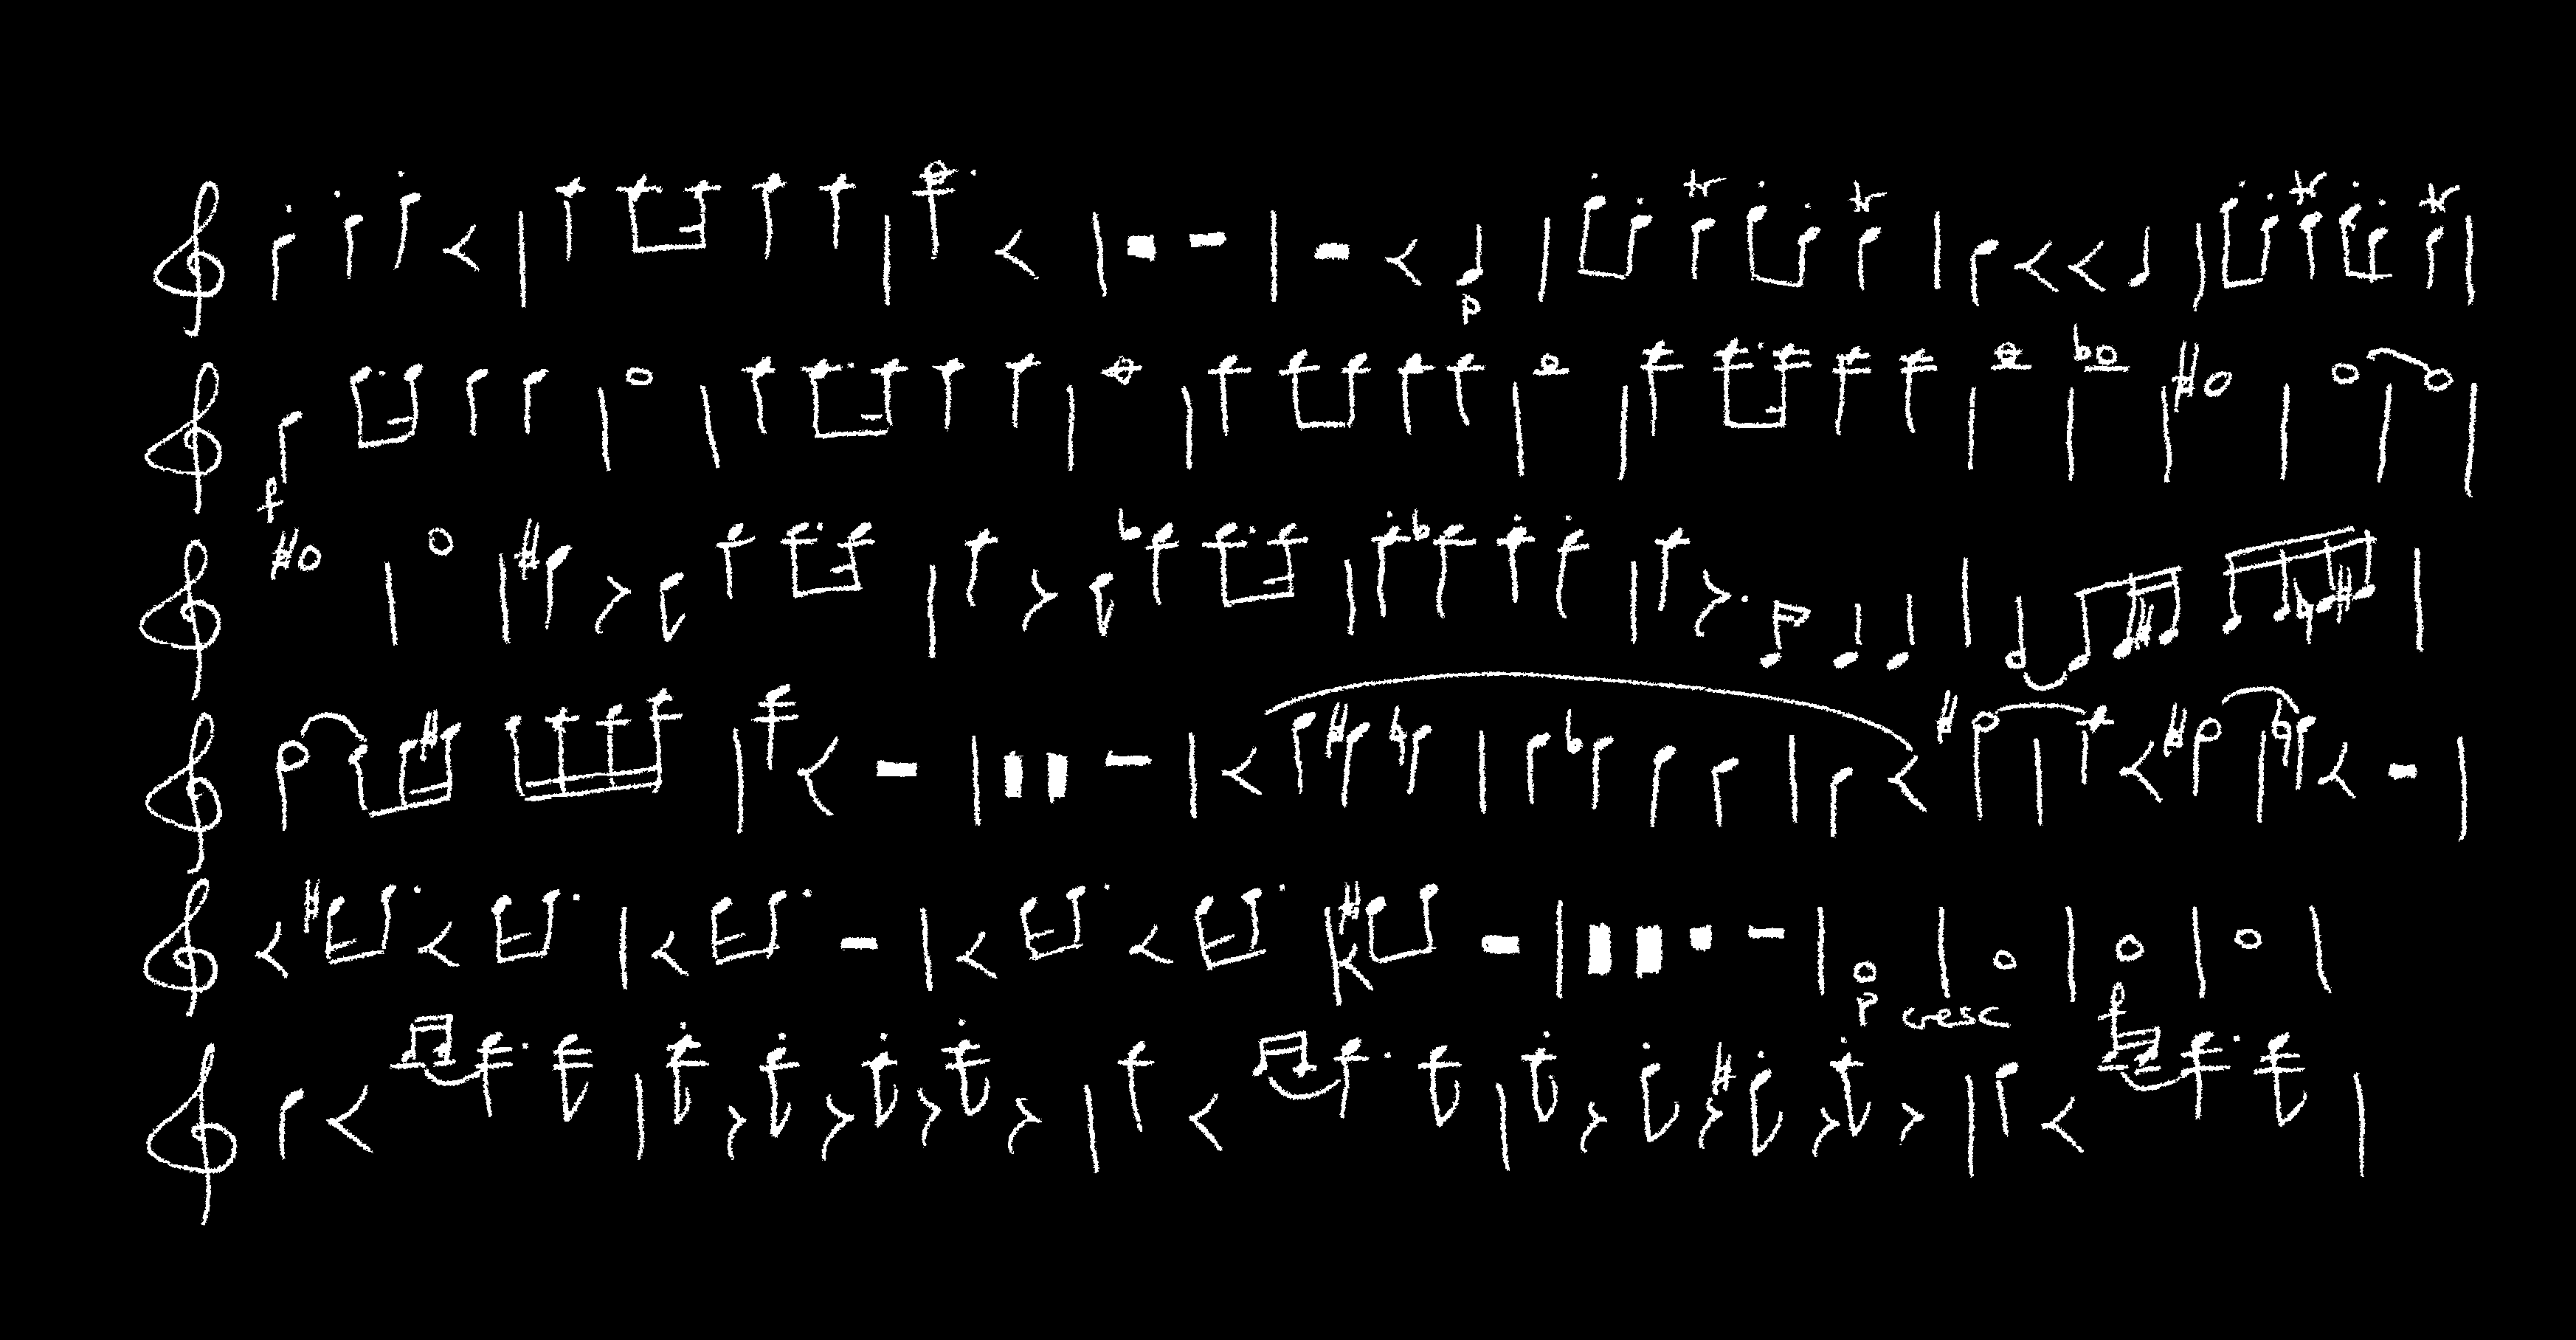 tr tr tr tr
p
f
p cresc f